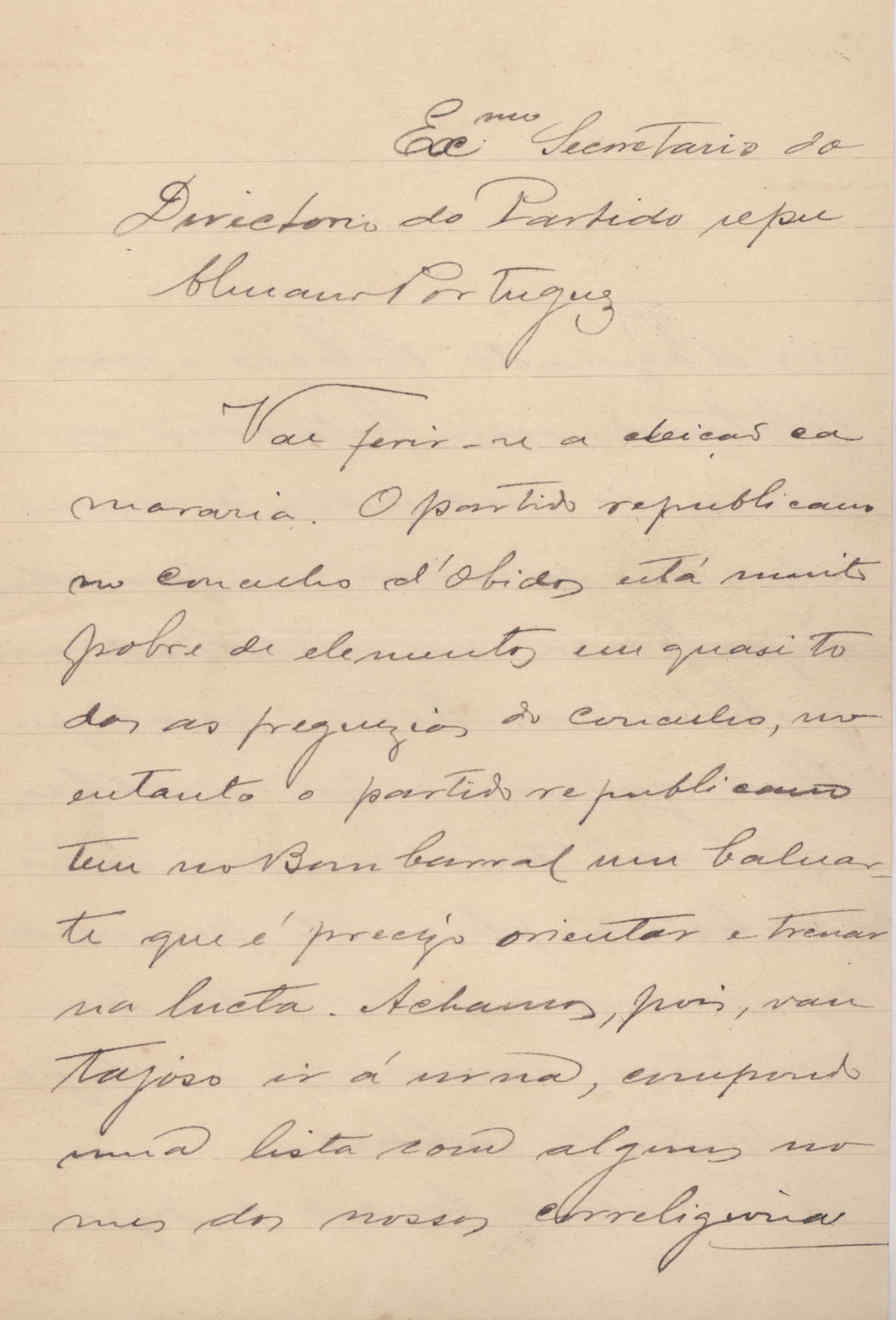 Ex.mo Secretario do
Directorio do Partido repu
blicano Portuguez
Vae ferir-se a eleição ca
mararia. O partido republicano
no concelho d'Obidos está muito
pobre de elementos em quasi to
das as freguezias do concelho, no
entanto o partido republicano
tem no Bombarral um baluar-
te que é preciso orientar e trenar
na lucta. Achamos, pois, van
tajoso ir á urna, compondo
uma lista com alguns no
mes dos nossos correligiona